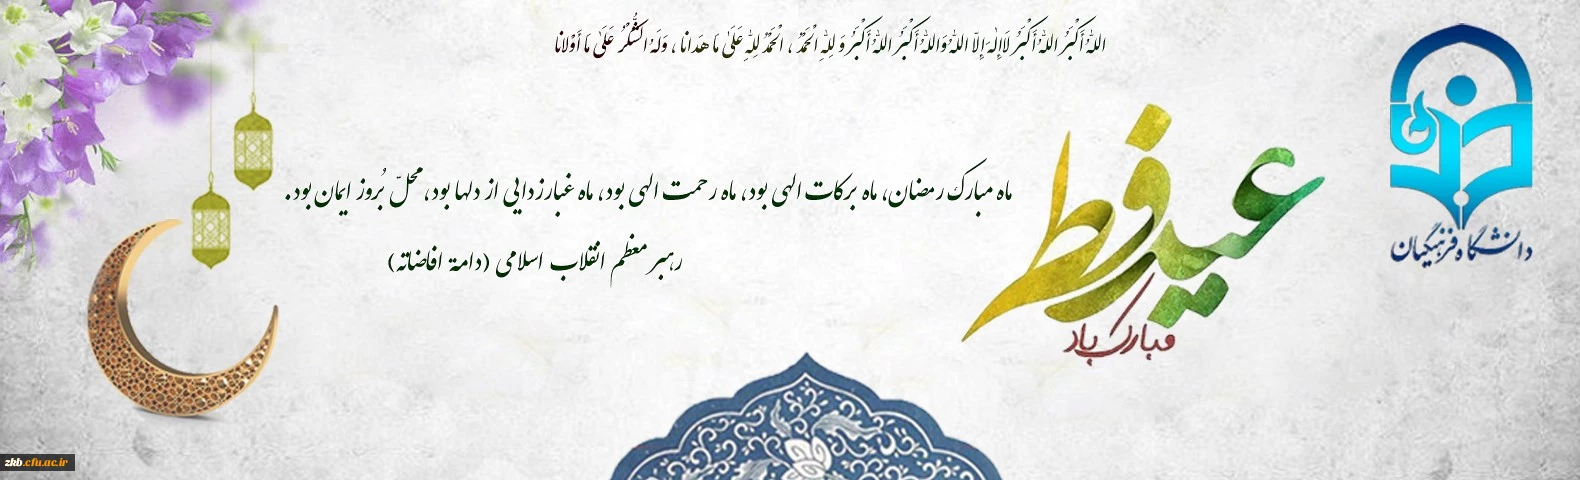 اللهُ أَكْبَرُ اللهُ أَكْبَرُ لَاإِلٰهَ إِلاّ اللهُ وَاللهُ أَكْبَرُ اللهُ أَكْبَرُ وَ لِلّٰهِ الْحَمْدُ ، الْحَمْدُ لِلّٰهِ عَلَىٰ مَا هَدَانا ، وَلَهُ الشُّكْرُ عَلَىٰ مَا أَوْلانا
عید فطر
مبارک باد
ماه مبارک رمضان، ماه برکات الهی بود، ماه رحمت الهی بود، ماه غبارزدایی از دلها بود، محلّ بُروز ایمان بود.
رهبر معظم انقلاب اسلامی (دامة افاضاته)
دانشگاه فرهنگیان
zkb.cfu.ac.ir